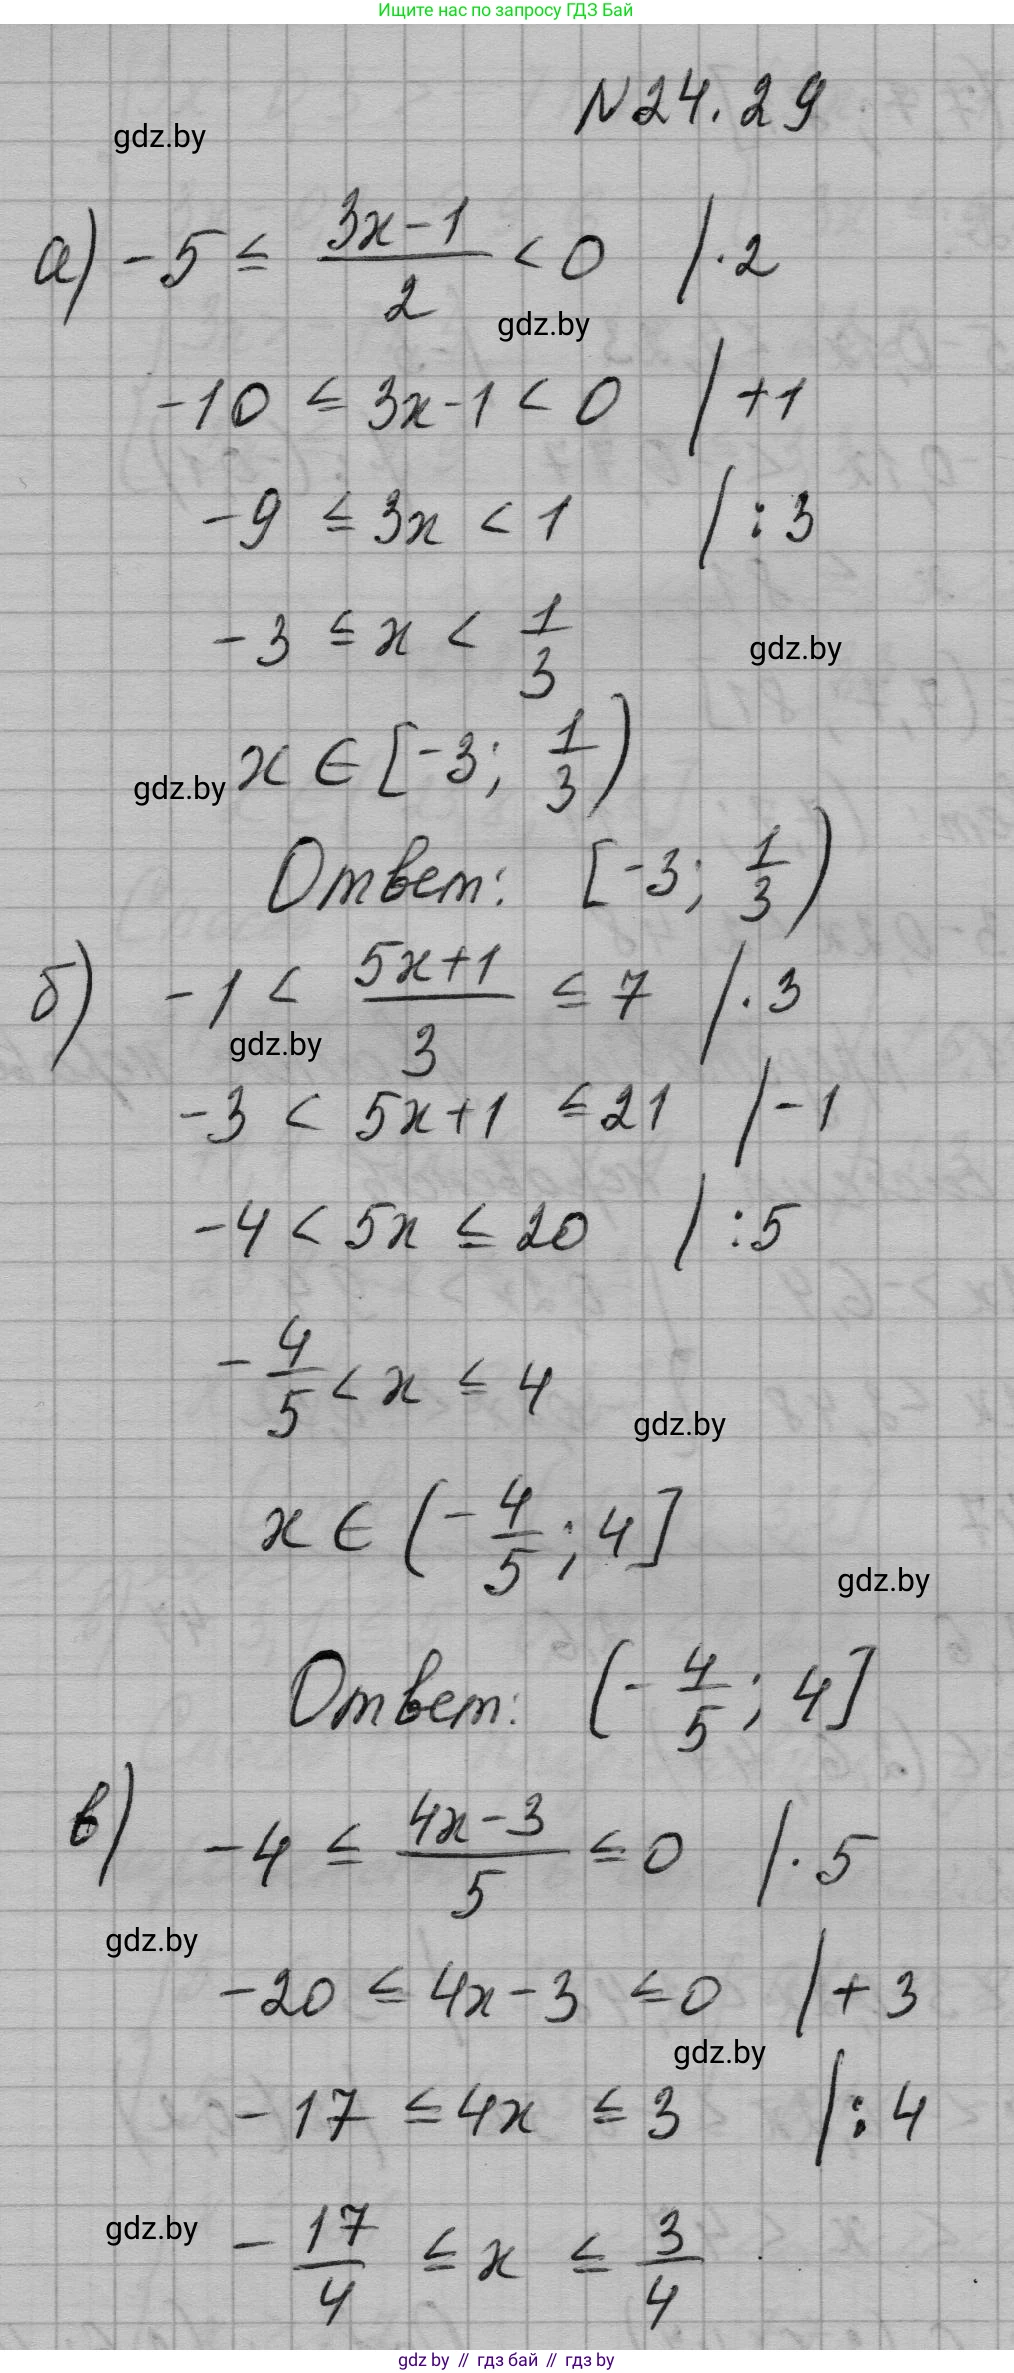 Ищите нас по запросу ГДЗ Бай
N24.29
gdz.by
а) -5 ≤ (3x-1)/2 < 0 /·2
gdz.by
-10 ≤ 3x-1 < 0 /+1
-9 ≤ 3x < 1 /:3
-3 ≤ x < 1/3
gdz.by
x ∈ [-3; 1/3)
gdz.by
Ответ: [-3; 1/3)
б) -1 < (5x+1)/3 ≤ 7 /·3
gdz.by
-3 < 5x+1 ≤ 21 /-1
-4 < 5x ≤ 20 /:5
-4/5 < x ≤ 4
gdz.by
x ∈ (-4/5; 4]
gdz.by
Ответ: (-4/5; 4]
в) -4 ≤ (4x-3)/5 ≤ 0 /·5
gdz.by
-20 ≤ 4x-3 ≤ 0 /+3
gdz.by
-17 ≤ 4x ≤ 3 /:4
gdz.by
-17/4 ≤ x ≤ 3/4
gdz.by // гдз бай // гдз by